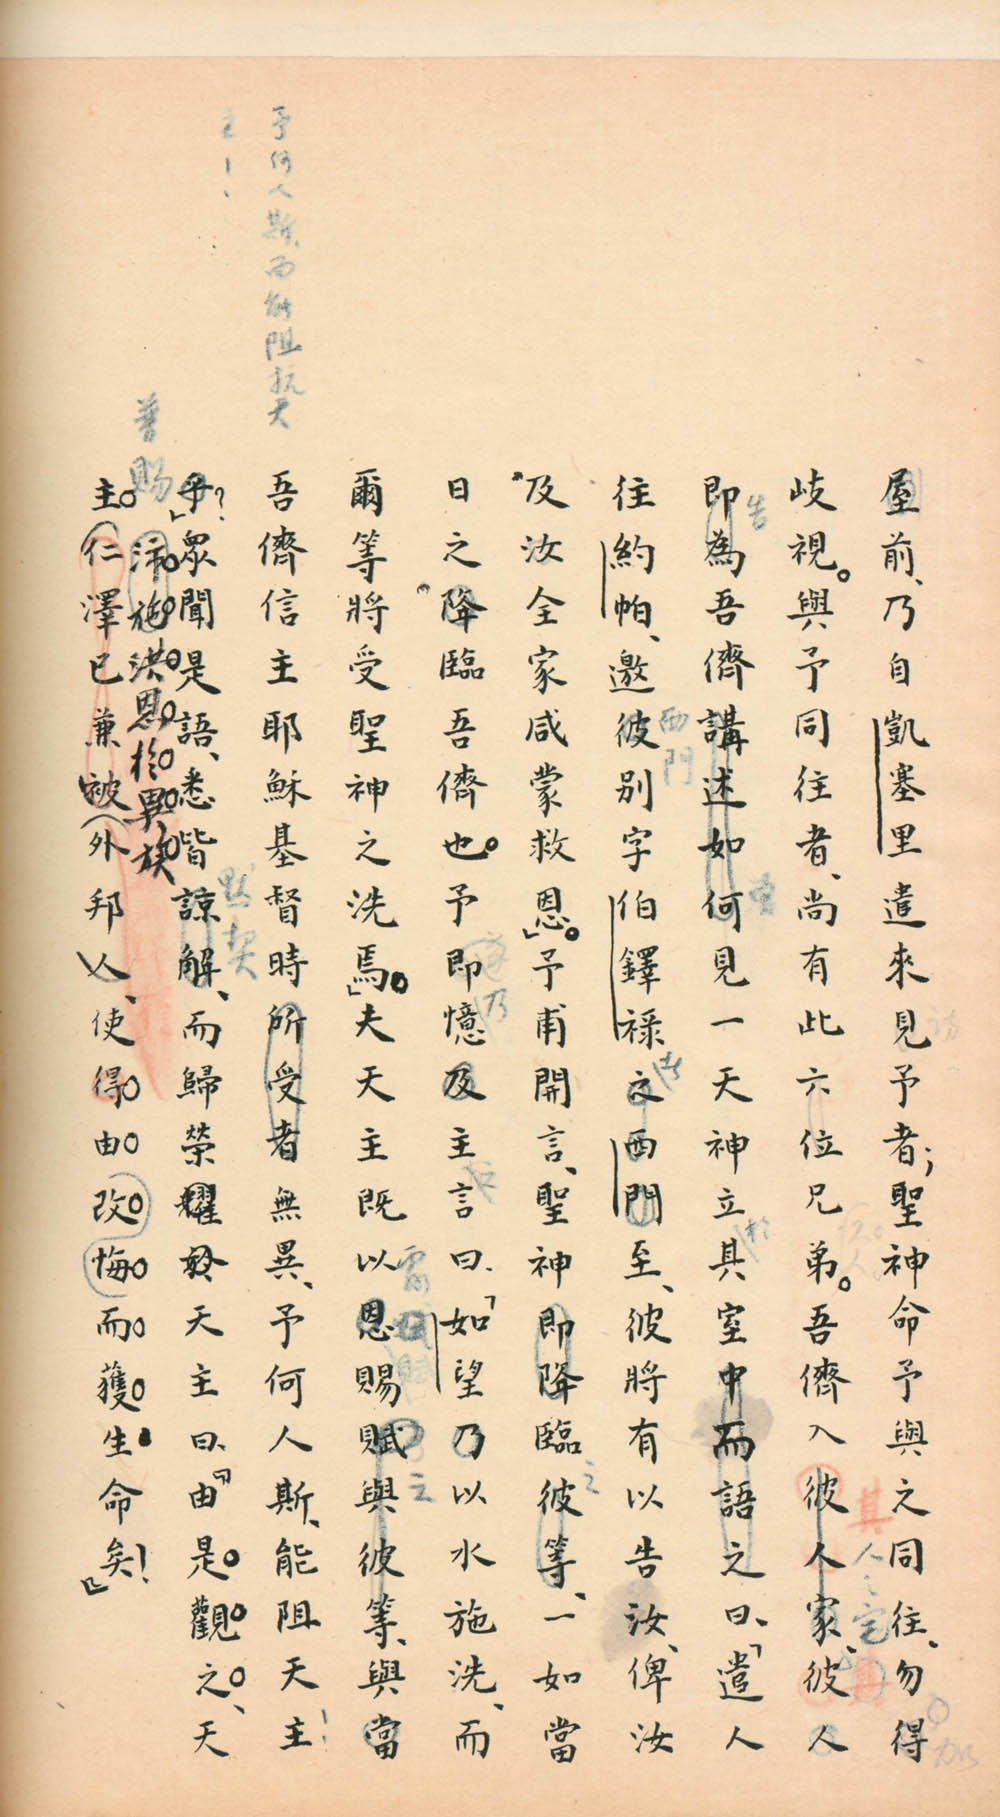 屋前、乃自凱塞里遣來見予者；聖神命予與之同往、勿得
歧視。與予同往者、尚有此六位兄弟。吾儕入彼人家、彼人
即為吾儕講述如何見一天神立其室中而語之曰、「遣人
往約帕、邀彼別字伯鐸祿之西門至、彼將有以告汝、俾汝
及汝全家咸蒙救恩。」予甫開言、聖神即降臨彼等、一如當
日之降臨吾儕也。予即憶及主言曰、「如望乃以水施洗、而
爾等將受聖神之洗焉。」夫天主既以恩賜賦與彼等、與當
吾儕信主耶穌基督時所受者無異、予何人斯、能阻天主
乎？」眾聞是語、悉皆諒解、而歸榮耀於天主曰、「由是觀之、天
主仁澤已兼被外邦人、使得由改悔而獲生命矣！」
予何人斯、而能阻抗天
主！
普賜
沛施洪恩於異族
默契
西門
告
者
乃
於
之
其
人之宅